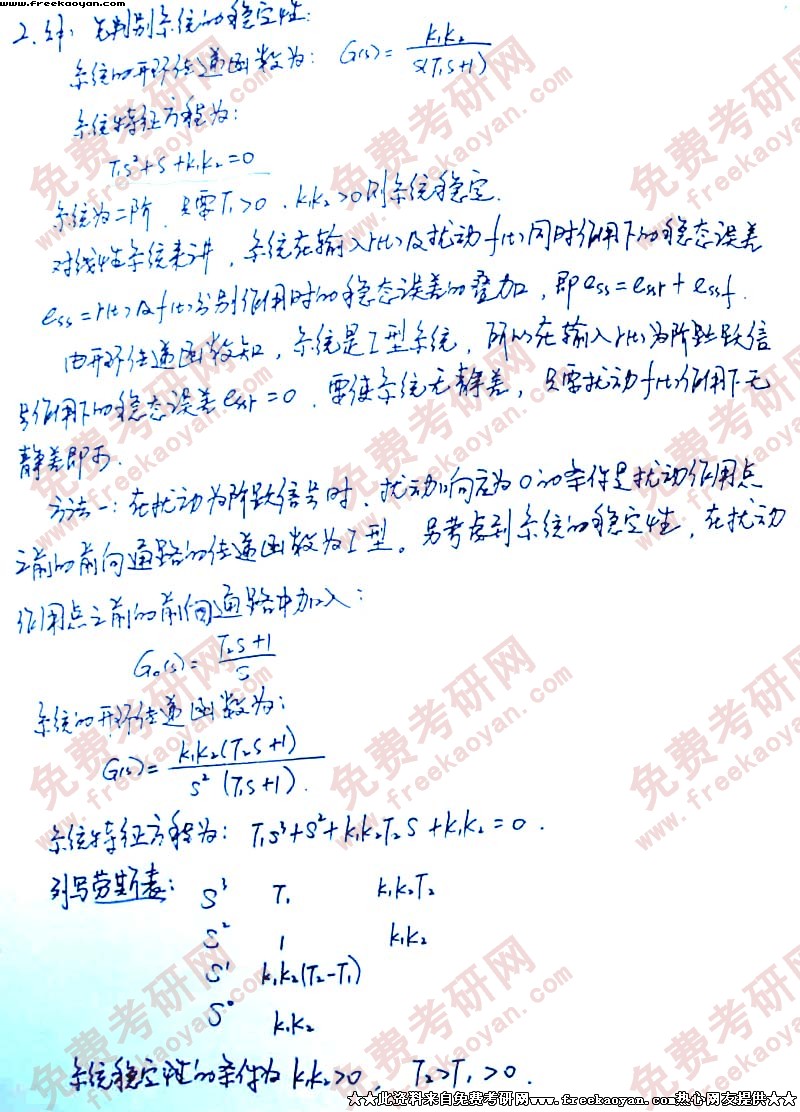 www.freekaoyan.com
2.解：先判别系统的稳定性：
系统的开环传递函数为： G(s)= k₁k₂/s(T₁s+1)
系统特征方程为：
T₁s²+s+k₁k₂=0
系统为二阶，只要T₁>0，k₁k₂>0则系统稳定.
对线性系统来讲，系统在输入r(t)及扰动f(t)同时作用下的稳态误差
ess=r(t)及f(t)分别作用时的稳态误差的叠加，即ess=essr+essf.
由开环传递函数知，系统是I型系统，所以在输入r(t)为阶跃信
号作用下的稳态误差essr=0.要使系统无静差，只要扰动f(t)作用下无
静差即可.
方法一：在扰动为阶跃信号时，扰动响应为0的条件是扰动作用点
之前的前向通路的传递函数为I型。另考虑到系统的稳定性，在扰动
作用点之前的前向通路中加入：
G₀(s)= T₂s+1/s
系统的开环传递函数为：
G(s)= k₁k₂(T₂s+1)/s²(T₁s+1).
系统特征方程为：T₁s³+s²+k₁k₂T₂s+k₁k₂=0.
列写劳斯表：S³ T₁ k₁k₂T₂
S² 1 k₁k₂
S¹ k₁k₂(T₂-T₁)
S⁰ k₁k₂
系统稳定性的条件为k₁k₂>0，T₂>T₁>0.
★★此资料来自免费考研网www.freekaoyan.com热心网友提供★★